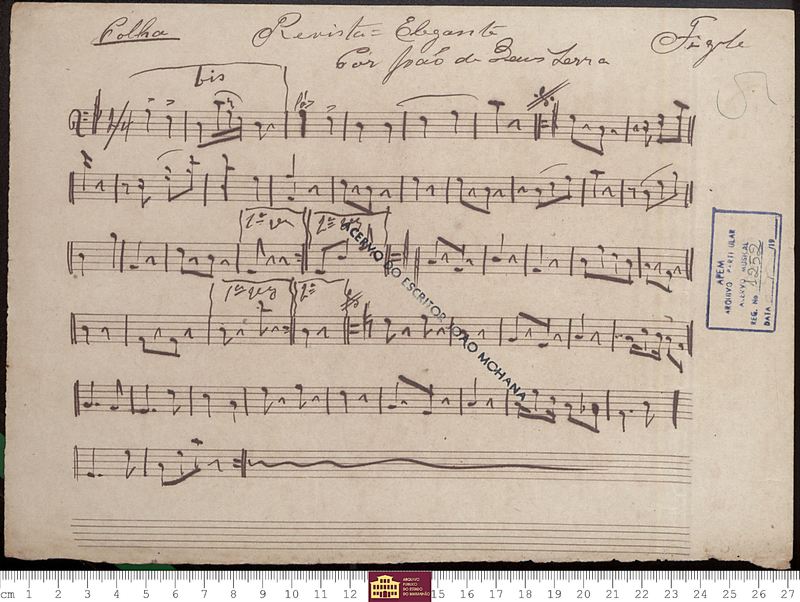 Polka Revista = Elegante
Por João de Deus Serra
bis
2/4
1ª vez 2ª vez
1ª vez 2ª
ACERVO DO ESCRITOR JOÃO MOHANA
APEM
ARQUIVO PARTICULAR
ACERVO MUSICAL
REG. No
DATA / /19
cm 1 2 3 4 5 6 7 8 9 10 11 12 15 16 17 18 19 20 21 22 23 24 25 26 27
ARQUIVO
PÚBLICO
DO ESTADO
DO MARANHÃO